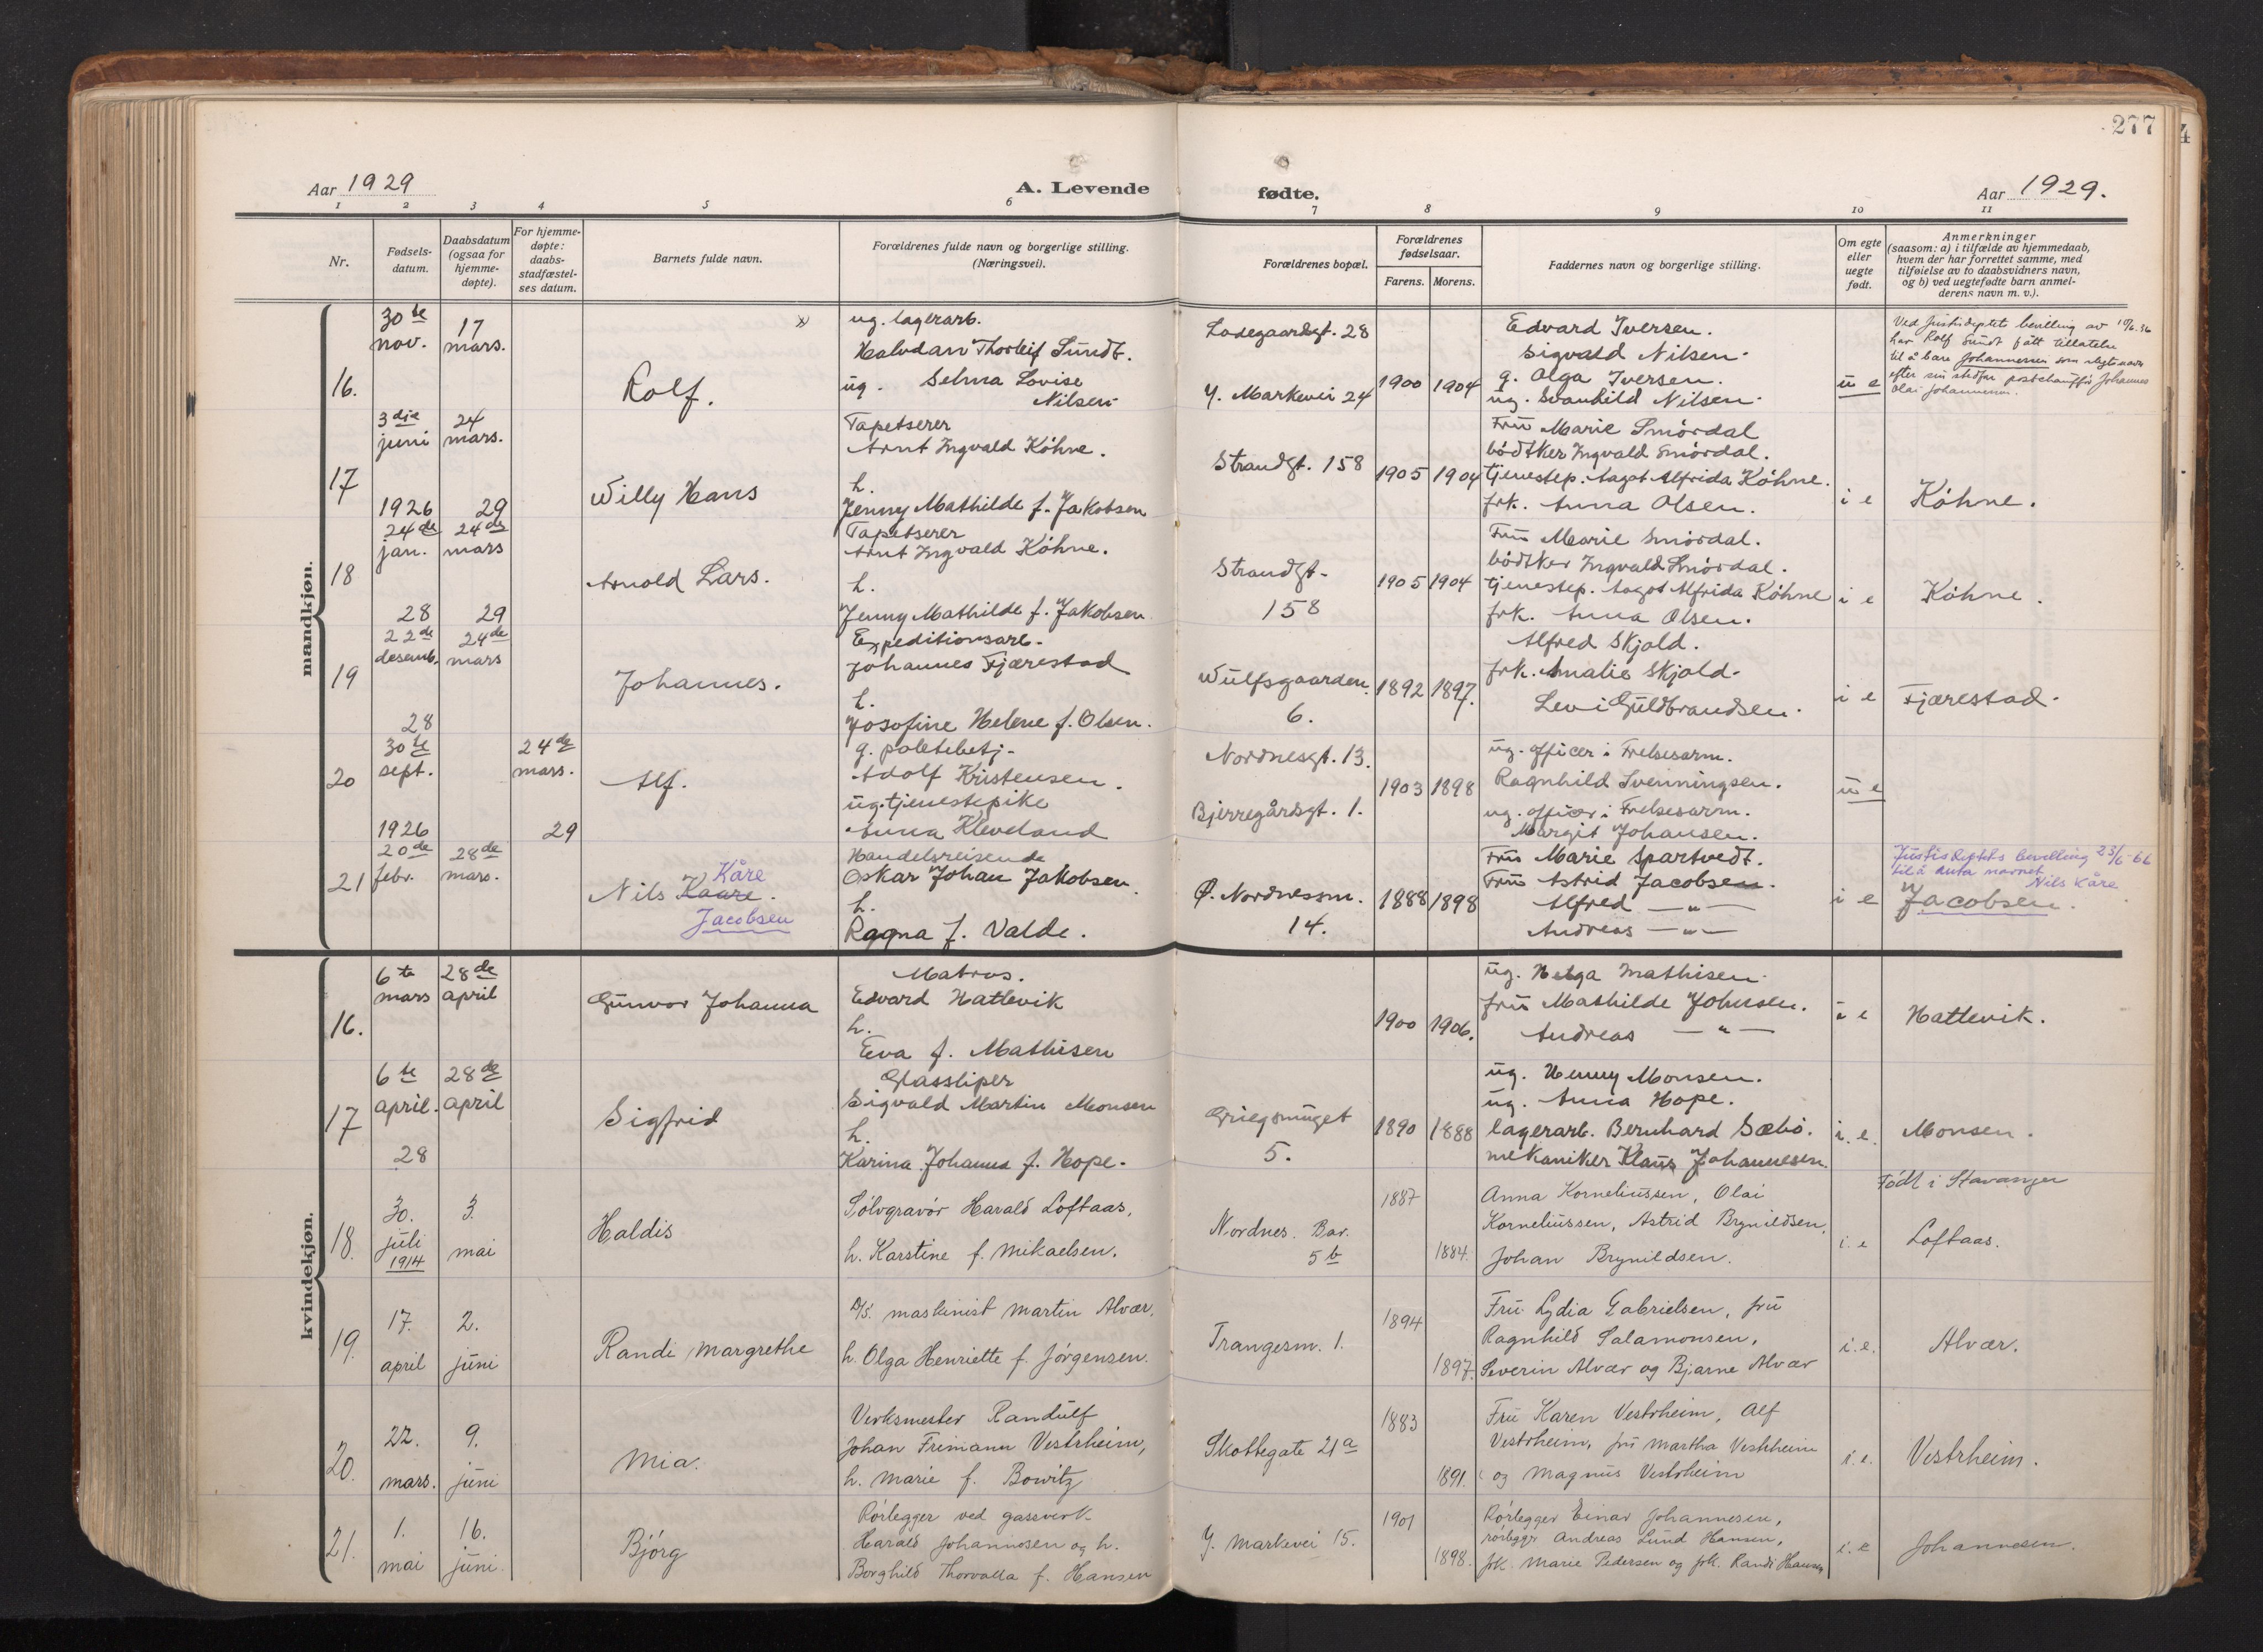 277
Aar 1929
A. Levende
fødte.
Aar 1929.
1 2 3 4 5 6 7 8 9 10 11
Nr.
Fødsels-
datum.
Daabsdatum
(ogsaa for
hjemme-
døpte).
For hjemme-
døpte:
daabs-
stadfæstel-
ses datum.
Barnets fulde navn.
Forældrenes fulde navn og borgerlige stilling.
(Næringsvei).
Forældrenes bopæl.
Forældrenes
fødselsaar.
Farens. Morens.
Faddernes navn og borgerlige stilling.
Om egte
eller
uegte
født.
Anmerkninger
(saasom: a) i tilfælde av hjemmedaab,
hvem der har forrettet samme, med
tilføielse av to daabsvidners navn,
og b) ved uegtefødte barn anmel-
derens navn m. v.).
mandkjøn.
16.
30te
nov.
17
mars.
Rolf.
ug. lagerarb.
Halvdan Thorleif Sundt.
ug. Selma Lovise
Nilsen
Ladegaardsgt. 28
Y. Markevei 24
1900 1904
Edvard Iversen.
Sigvald Nilsen
g. Olga Iversen.
ug. Svanhild Nilsen
u e
Ved Justisdeptets bevilling av
har Rolf Sundt fått tillatelse
til å bære Johannessen som slegtsnavn
efter sin stedfar postchauffør Johannes
Olai Johannessen.
17
3dje
juni
1926
24
mars.
29
Willy Hans
Tapetserer
Arnt Ingvald Köhne.
h.
Jenny Mathilde f. Jakobsen
Strandgt. 158
1905 1904
Fru Marie Smördal
bödtker Ingvald Smördal.
tjenestep. Aagot Alfrida Köhne.
frk. Anna Olsen.
i e
Köhne.
18
24de
jan.
28
24de
mars
29
Arnold Lars.
Tapetserer
Arnt Ingvald Köhne.
h.
Jenny Mathilde f. Jakobsen
Strandgt.
158
1905 1904
Fru Marie Smördal.
bödtker Ingvald Smördal.
tjenestep. Aagot Alfrida Köhne
frk. Anna Olsen.
i e
Köhne.
19
22de
desemb.
28
24de
mars
Johannes.
Expeditionsarb.
Johannes Fjærestad
h.
Josofine Helene f. Olsen.
Wulfsgaarden
6.
1892 1897.
Alfred Skjold.
frk. Amalie Skjold.
Levi Guldbrandsen.
i e
Fjærestad.
20
30te
sept.
1926
24de
mars.
29
Alf.
g. politibetj.
Adolf Kristensen.
ug. tjenestepike
Anna Kleveland
Nordnesgt. 13.
Bjerregårdsgt. 1.
1903 1898
ug. officer i Frelsesarm.
Ragnhild Svenningsen.
ug. officer i Frelsesarm.
Margit Johansen.
u e
21
20de
febr.
28de
mars.
Nils Kaare.
Kåre
Jacobsen
Handelsreisende
Oskar Johan Jakobsen.
h.
Ragna f. Valde.
Ø. Nordnessm.
14.
1888 1898
Fru Marie Spartvedt.
Fru Astrid Jacobsen.
Alfred — " —
Andreas — " —
i e
Justisdeptets bevilling 23/6-66
til å anta navnet
Nils Kåre
Jacobsen.
kvindekjøn.
16.
6te
mars
28de
april
Gunvor Johanna
Matros.
Edvard Hatlevik
h.
Eva f. Mathisen
1900 1906.
ug. Helga Mathisen.
fru Mathilde Johnsen.
Andreas — " —
i e
Hatlevik.
17
6te
april.
28
28de
april
Sigfrid
Glassliper
Sigvald Martin Monsen
h.
Karina Johanna f. Hope.
Griegsmuget
5.
1890 1888
ug. Henny Monsen.
ug. Anna Hope.
lagerarb. Bernhard Sæbö.
mekaniker Klaus Johannesen.
i. e.
Monsen.
18.
30.
juli
1914
3.
mai
Haldis
Sölvgravör Harald Loftaas,
h. Karstine f. Mikaelsen.
Nordnes. Bar.
5b
1887
1884.
Anna Korneliussen, Olai
Korneliussen, Astrid Brynildsen,
Johan Brynildsen.
i. e
Födt i Stavanger
Loftaas.
19.
17.
april
2.
juni
Randi Margrethe
D/S. maskinist Martin Alvær,
h. Olga Henriette f. Jörgensen.
Trangesm. 1.
1894
1897.
Fru Lydia Gabrielsen, fru
Ragnhild Salamonsen,
Severin Alvær og Bjarne Alvær
i. e.
Alvær.
20.
22.
mars.
9.
juni
Mia.
Verksmester Randulf
Johan Frimann Vestrheim,
h. Marie f. Bowitz
Skottegate 21a
1883
1891.
Fru Karen Vestrheim, Alf
Vestrheim, fru Martha Vestrheim
og Magnus Vestrheim
i. e.
Vestrheim.
21.
1.
mai
16.
juni.
Björg
Rörlegger ved gassverk
Harald Johannesen og h.
Borghild Thorvalla f. Hansen
Y. Markevei 15.
1901
1898.
Rörlegger Einar Johannesen,
rörlegger Andreas Lund Hansen,
frk. Marie Pedersen og frk. Randi Hansen
i. e
Johannesen.